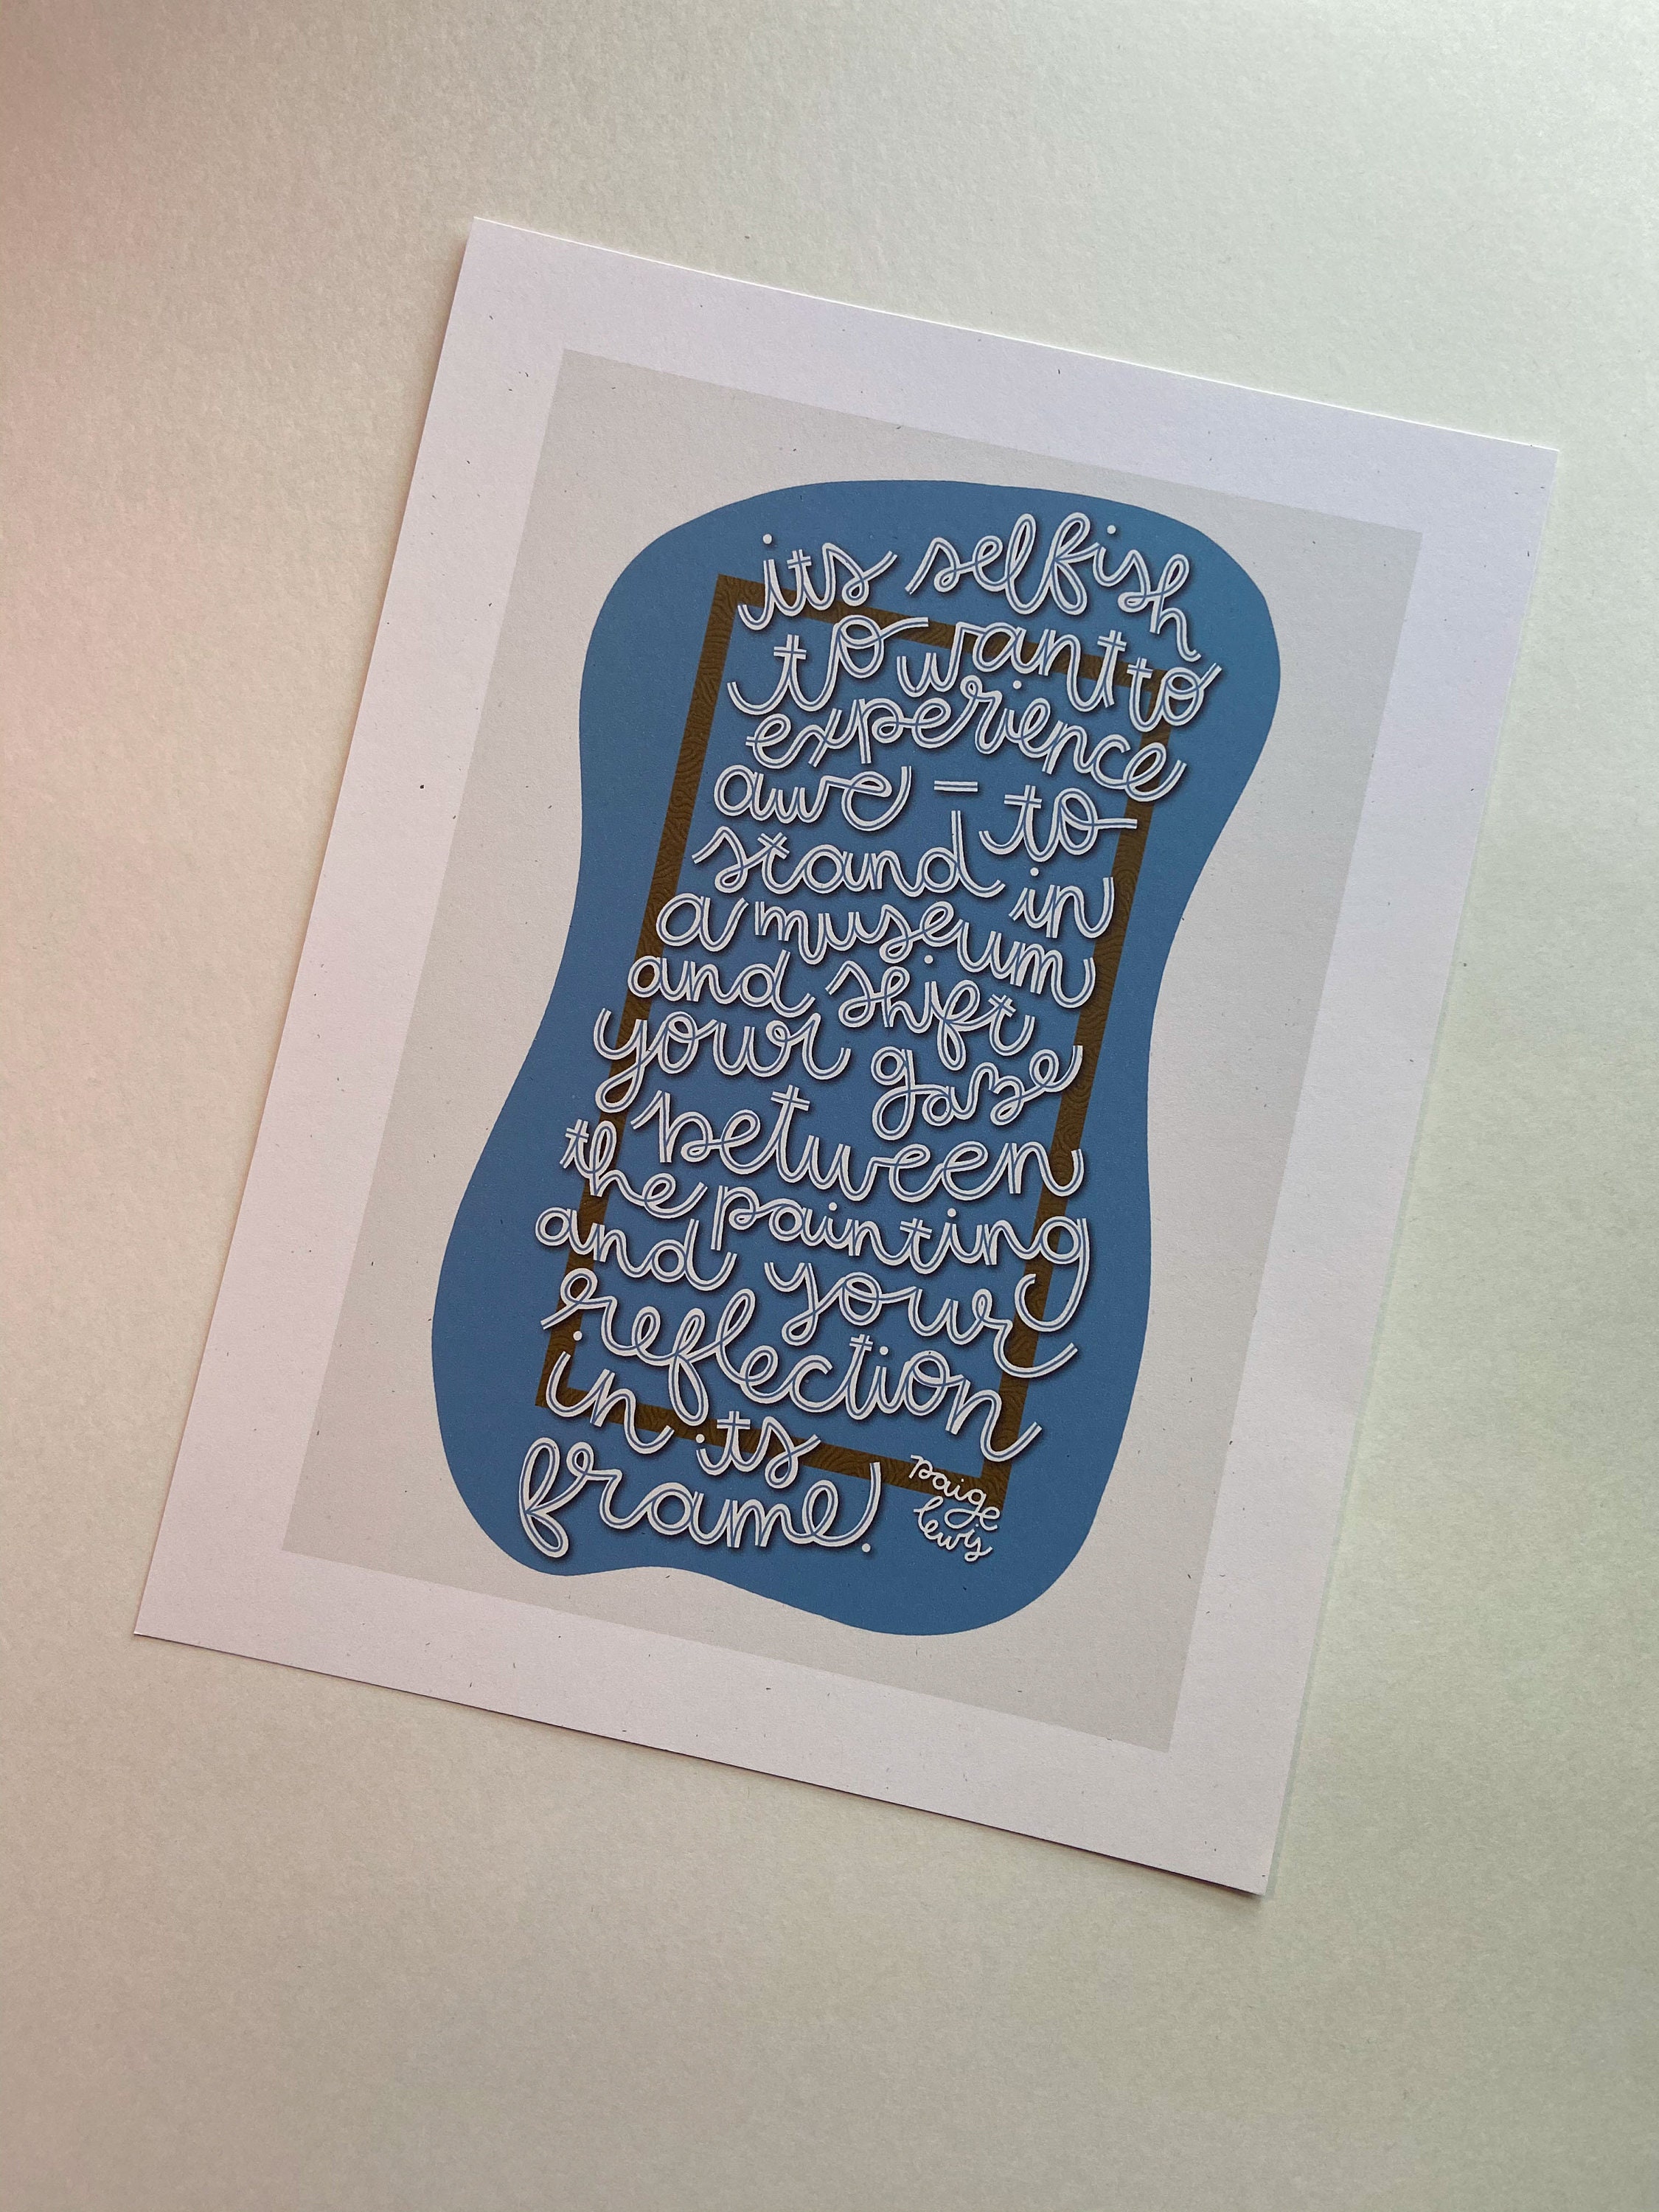 its selfish
to want to
experience
awe – to
stand in
a museum
and shift
your gaze
between
the painting
and your
reflection
in its
frame.
paige
lewis